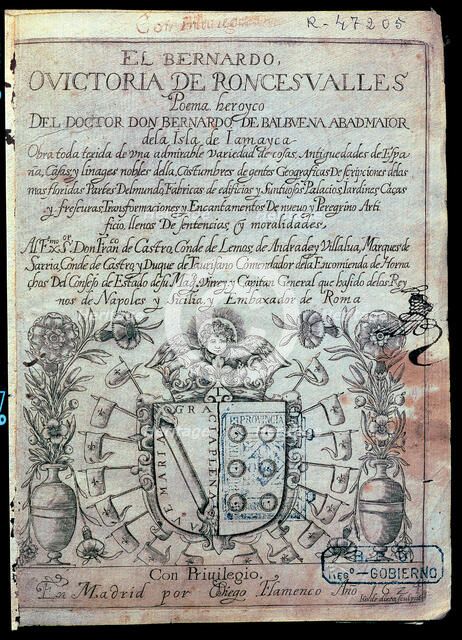 R-47205
EL BERNARDO,
O VICTORIA DE RONCESVALLES
Poema heroyco
DEL DOCTOR DON BERNARDO DE BALBVENA ABAD MAIOR
de la Isla de Iamayca
Obra toda texida de vna admirable Variedad de cosas, Antiguedades de Espa
ña, Casas y linages nobles della, Costumbres de gentes Geograficas Descripciones delas
mas floridas Partes Del mundo, Fabricas de edificios y Suntuosos Palacios, Iardines Caças
y frescuras, Transformaciones y Encantamentos De nuevo y Peregrino Arti
ficio, llenos De sentencias y moralidades,
Al Exmo Sor Don Franco de Castro, Conde de Lemos, de Andrade y Villalua, Marques de
Sarria, Conde de Castro y Duque de Taurisano Comendador dela Encomienda de Horna
chos Del Consejo de Estado de su Mag. Virrey y Capitan General que ha sido delos Rey
nos de Napoles y Sicilia y Embaxador de Roma
AVE MARIA
GRA
CIPLENA
PROVINCIA
Con Priuilegio.
REGo - GOBIERNO
En Madrid por Diego Flamenco Año